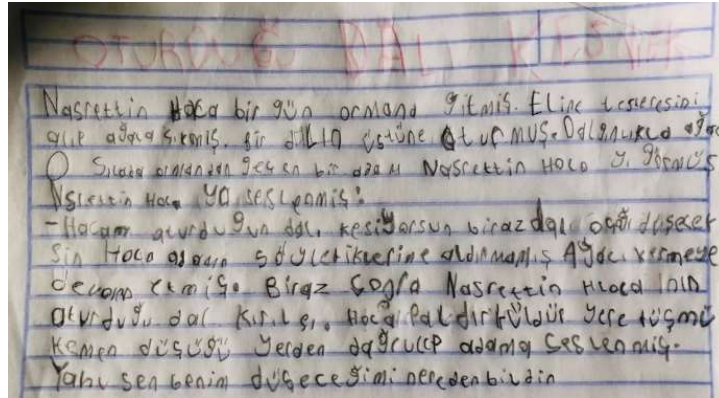 OTURDUĞU DALI KESMEK
Nasrettin Hoca bir gün ormana gitmiş. Eline testeresini
alıp ağaca çıkmış. Bir dalın üstüne oturmuş. Dalgınlıkla ağac
O sırada ormandan geçen bir adam Nasrettin Hoca yı görmüş
Nsrettin Hoca ya seslenmiş:
-Hocam oturduğun dalı kesiyorsun birazdan aşağı düşecek
sin Hoca adamın söyletiklerine aldırmamış Ağac kesmeye
devam etmiş. Biraz sonra Nasrettin Hoca nın
oturduğu dal kırılmış, Hoca paldır küldür yere düşmü
Kemen düşüğü yerden dağrulup adama seslenmiş.
Yahu sen benim düşeceğimi nereden bildin